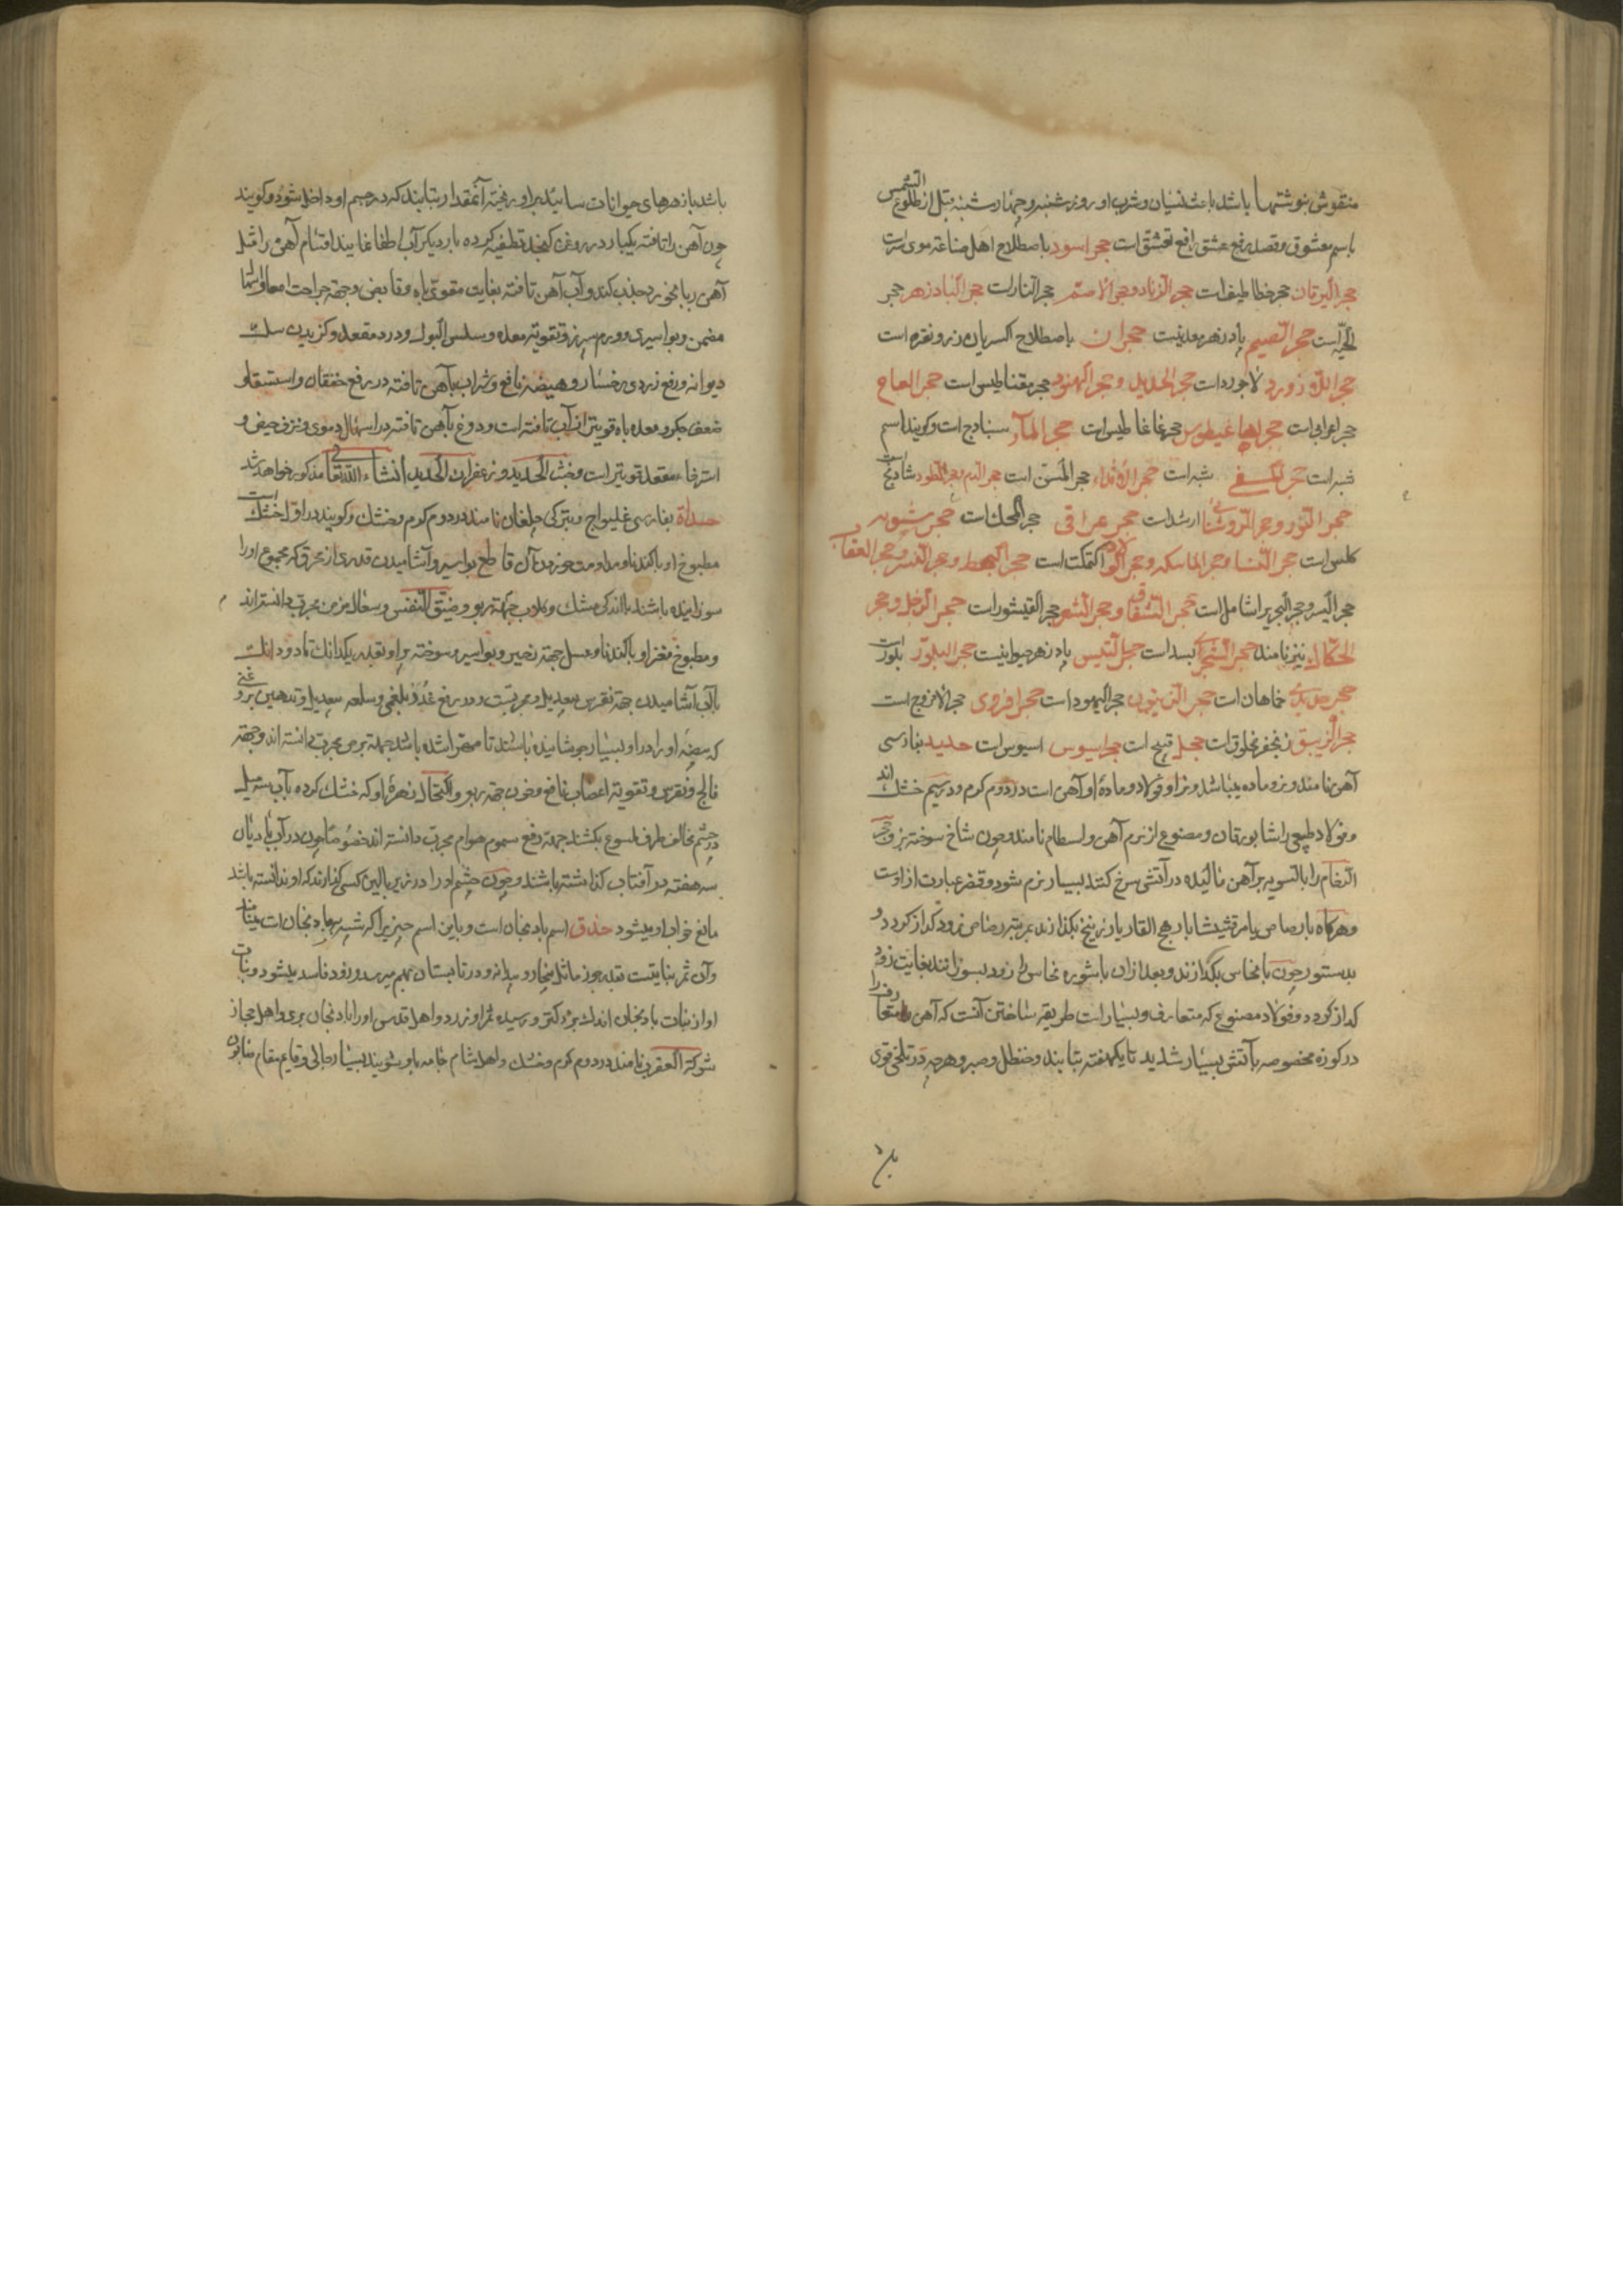 منقوش نوشتها باشد باعث نسیان و شرب او روز شنبه و چهارشنبه قبل از طلوع الشمس
باسم معشوق و قصد رفع عشق رافع تعشق است حجر اسود باصطلاح اهل صناعة موی سرست
حجر الیرقان حجر خطاطیف است حجر الزناد و حجر الاصم حجر النار است حجر البادزهر حجر
الحیه است حجر باد زهر معدنیست حجران باصطلاح اکسریان زر و نقره است
لاجورد است حجر الحدید و حجر الهنود حجر مقناطیس است حجر العاج
حجر اعرابی است حجر غاغاطیس است حجر الماء سنبادج است و کویند اسم
شبه است شبه است حجر حجر المسن است حجر الدم شادنج است
حجر النور و حجر الروشنائی است حجر عراقی است حجر
است حجر النفسا و حجر الماسکه و حجر اکتمکت است حجر و حجر النسر و حجر العقاب
حجر الیسر و حجر را شاملست حجر و حجر الشعر حجر القیشور است حجر الرجل و حجر
نیز نامند حجر الشجری بسد است حجر التیس باد زهر حیوانیست حجر البلور بلور است
حجر حدیدی خماهان است حجر الزیتون حجر الیهود است حجر افروی حجر است
حجر الزیبق زنجفر مخلوق است حجل قبج است حجر اسیوس اسیوس است حدید بفارسی
آهن نامند و نر و ماده میباشد و نر او فولاد و ماده او آهن است در دوم کرم و در سیم خشک اند
و فولاد طبیعی را شابورقان و مصنوع از نرم آهن و اسطام نامند و چون شاخ سوخته بز و حجر
الرخام را بالسویه بر آهن مالیده در آتش سرخ کنند بسیار نرم شود و عبارت از اوست
و هرکاه با رصاص یا مرقشیشا یا رهج الفار یا زرنیخ بکذازند بمرتبه رصاص زود کداز کردد و
بدستور چون با نحاس بکدازند و بعد از آن با شوره نحاس را زود بسوزانند بغایت زود
کداز کردد و فولاد مصنوع که متعارف و بسیار است طریقه ساختن آنست که آهن متعارف را
در کوزه مخصوصه بآتش بسیار شدید تا یکهفته بتابند و حنظل و صبر و هرچه در تلخی قوی
باشد با زهرهای حیوانات سائیده بر او ریخته آنمقدار بتابند که در جسم او داخل شود و کویند
چون آهن را تافته یکبار در روغن کنجد تطفیه کرده بار دیکر آب اطفا نمایند اقسام آهن را مثل
آهن ربا بخود جذب کند و آب آهن تافته بغایت مقوی باه و قابض و جهة جراحت امعا و اسهال
مزمن و بواسیر و ورم سپرز و تقویة معده و سلس البول و درد مقعد و کزیدن سک
دیوانه و رفع زردی رخسار و هیضه نافع و شراب بآهن تافته در رفع خفقان و استسقا و
ضعف جکر و معده و باه قویتر از آب تافته است و دوغ بآهن تافته در اسهال دموی و نزف حیض و
استرخاء مقعد قویتر است و خبث الحدید و زعفران الحدید انشاء الله تعالی مذکور خواهد شد
حداة بفارسی غلیواج و بترکی چلغان نامند در دوم کرم و خشک و کویند در اول خشک است
مطبوخ او با کندنا و مداومت خوردن آن قاطع بواسیر و آشامیدن قدری از محرق که مجموع او را
سوزانیده باشند با اندکی مشک و کلاب جهة ربو و ضیق النفس و سعال مزمن مجرب دانسته اند
و مطبوخ مغز او با کندنا و عسل جهة زحیر و بواسیر و سوخته پر او بقدر یکدانک تا دو دانک
بآب آشامیدن جهة نقرس بیعدیل و مجربست و در رفع غدد بلغمی و سلعه بیعدیل و تدهین بروغنی
که بیضه او را در او بسیار جوشانیده باشند تا مهرا شده باشد جهة برص مجرب دانسته اند و جهة
فالج و نقرس و تقویة اعصاب نافع و خون جهة ربو و اکتحال زهره او که خشک کرده بآب سه میل
در چشم مخالف طرف ملسوع بکشند جهة دفع سموم هوام مجرب دانسته اند خصوصا چون در آب بادیان
سه هفته در آفتاب کذاشته باشند و چون چشم او را در زیر بالین کسی کذارند که او ندانسته باشد
مانع خواب او میشود حدق اسم بادنجان است و باین اسم چیزیرا که شبیه ببادنجان است مینامند
و آن ثمر نباتیست بقدر جوزماثل و در تابستان بهم میرسد و زود فاسد میشود و نبات
او از نبات بادنجان اندک بزرکتر و رسیده ثمر او زرد و اهل قدس او را بادنجان بری و اهل حجاز
شوکة العقرب نامند در دوم کرم و خشک و اهل شام جامه باو شویند بسیار جالی و قایم مقام صابون